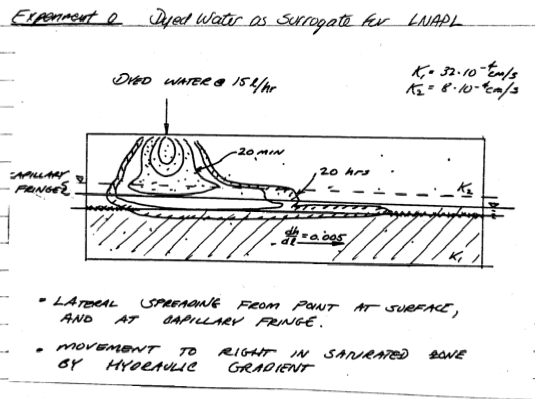 Experiment 0 Dyed Water as Surrogate for LNAPL
K₁ = 32·10⁻⁴ cm/s
K₂ = 8·10⁻⁴ cm/s
DYED WATER @ 15 l/hr
20 MIN
20 hrs
CAPILLARY
FRINGE
K₂
dh/dl = 0.005
K₁
• LATERAL SPREADING FROM POINT AT SURFACE,
AND AT CAPILLARY FRINGE.
• MOVEMENT TO RIGHT IN SATURATED ZONE
BY HYDRAULIC GRADIENT